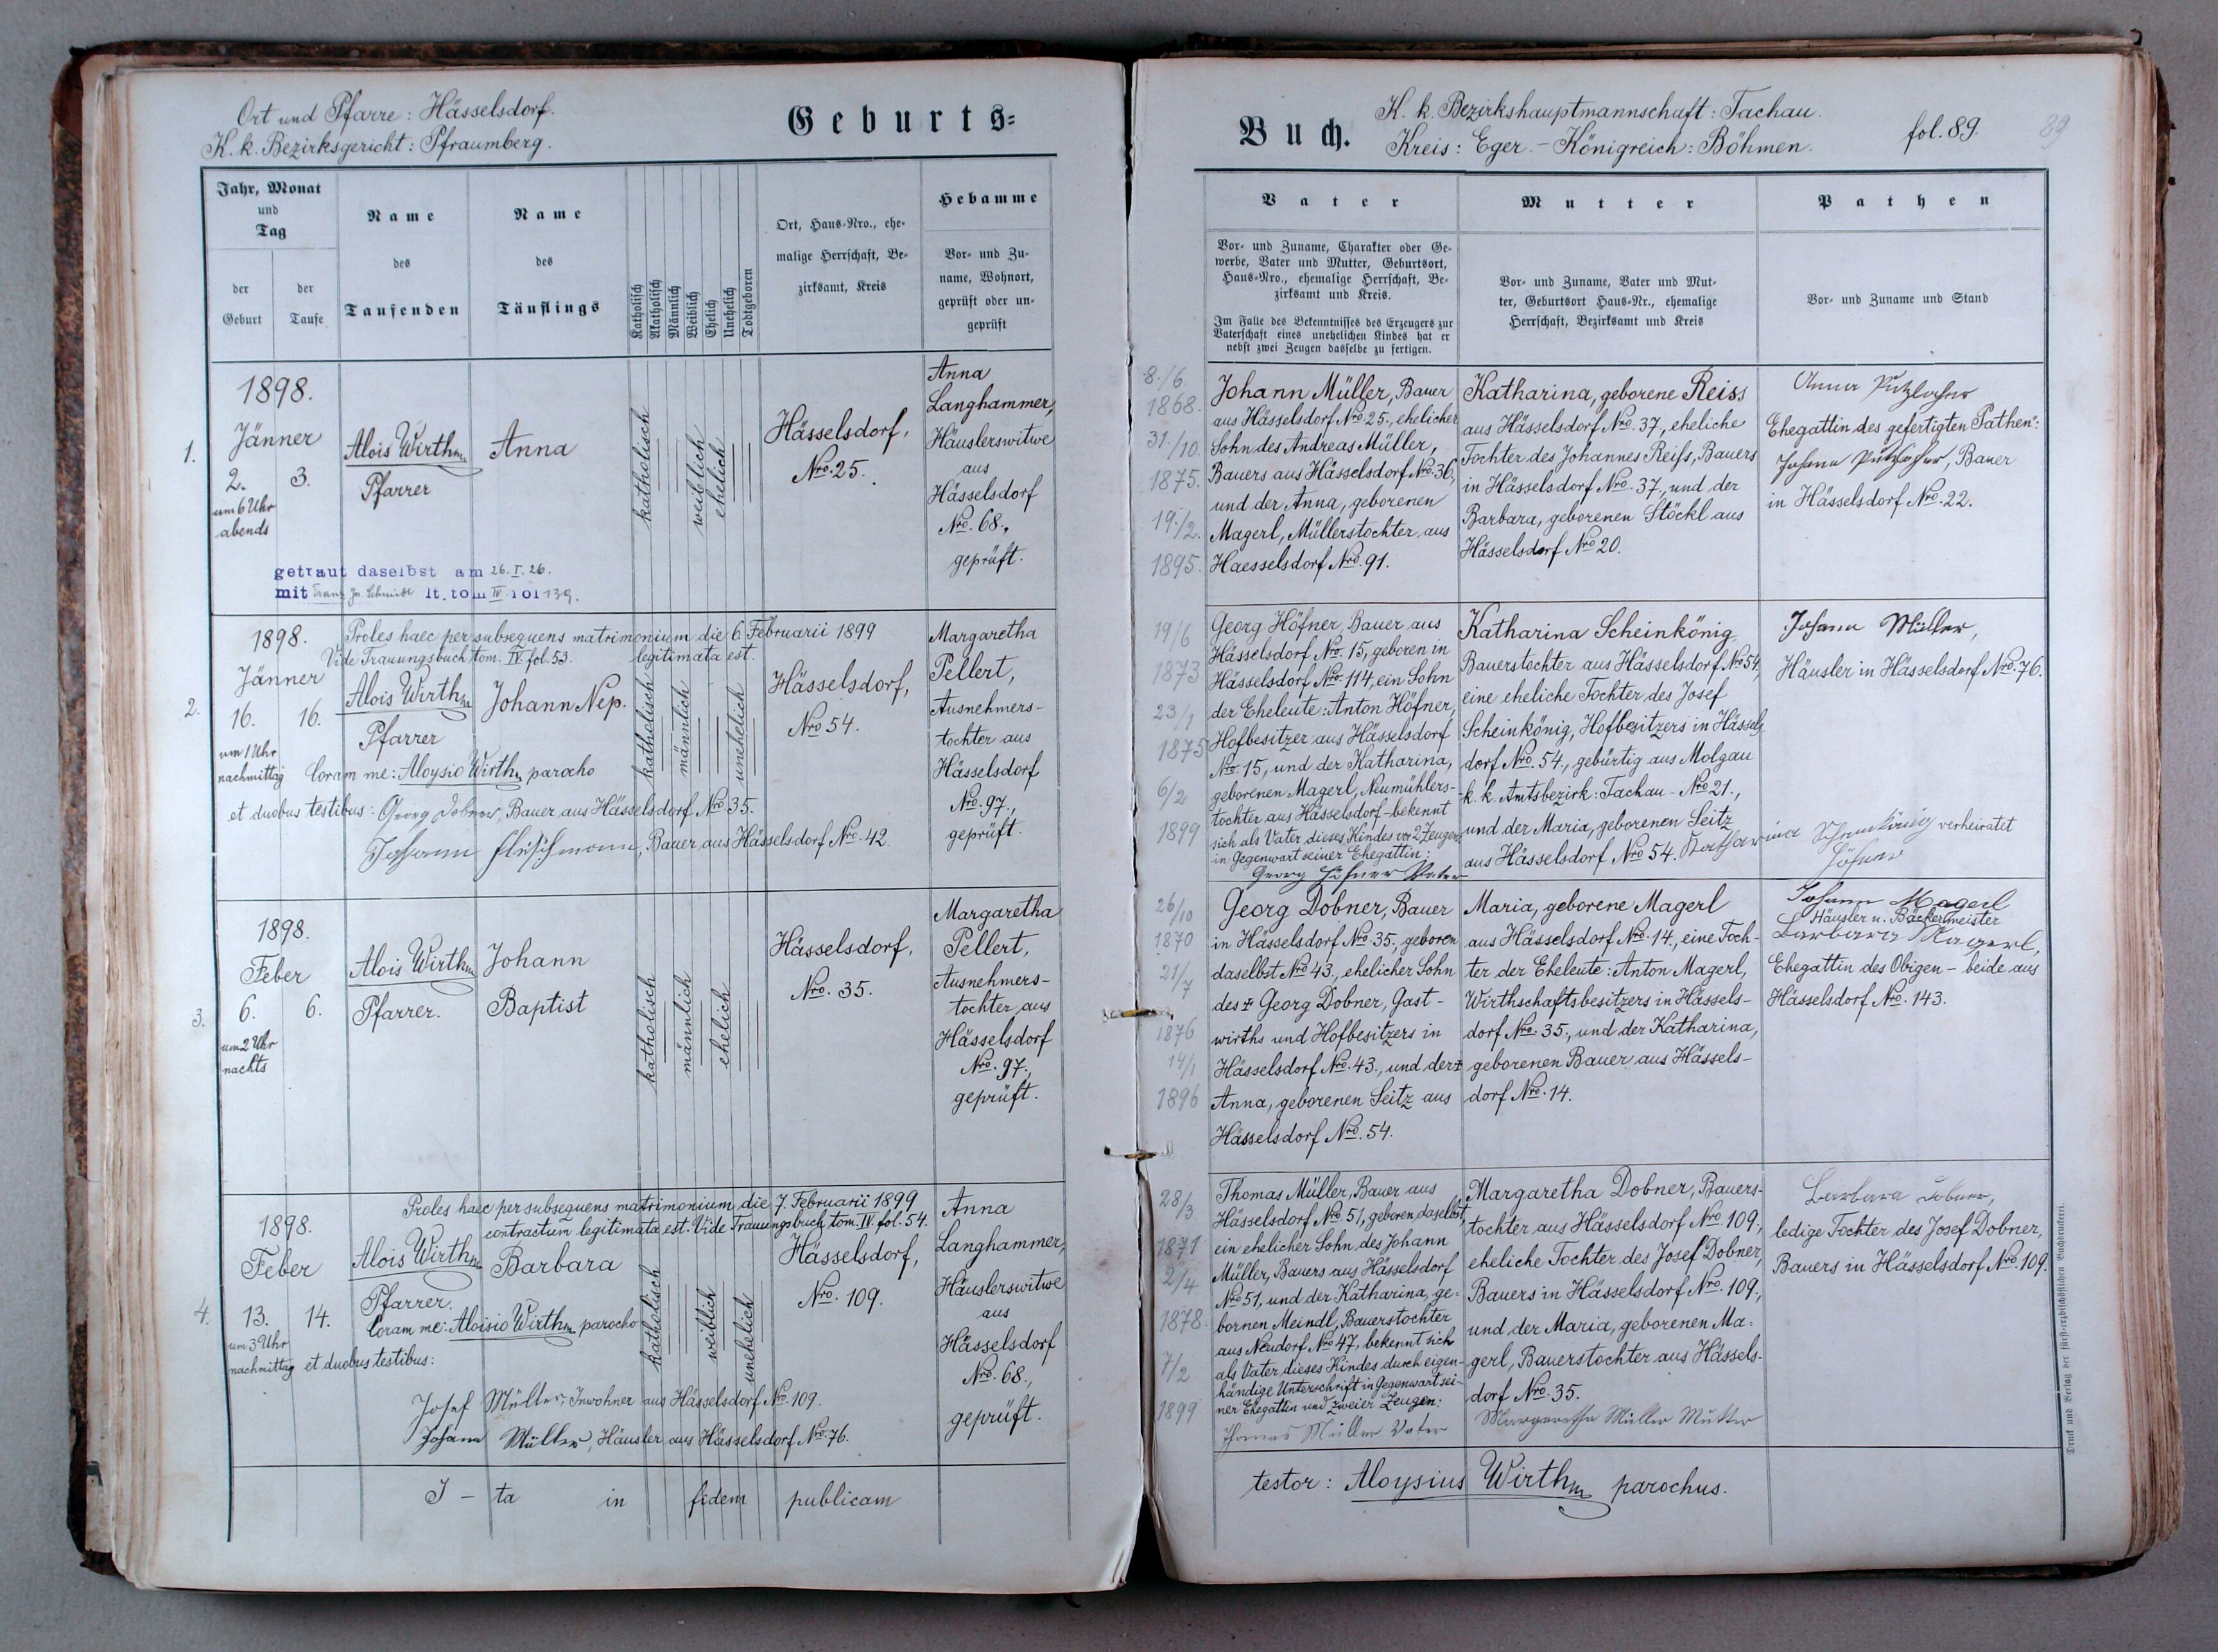 Ort und Pfarre: Hässelsdorf.
K. k. Bezirksgericht: Pfraumberg.
Geburts=
Jahr, Monat
und
Tag
der
Geburt
der
Taufe
Name
des
Taufenden
Name
des
Täuflings
Katholisch
Akatholisch
Männlich
Weiblich
Ehelich
Unehelich
Todtgeboren
Ort, Haus=Nro., ehe=
malige Herrschaft, Be=
zirksamt, Kreis
Hebamme
Vor= und Zu=
name, Wohnort,
geprüft oder un=
geprüft
1.
1898.
Jänner
2.
3.
um 6 Uhr
abends
Alois Wirth
Pfarrer
Anna
katholisch
weiblich
ehelich
Hässelsdorf,
Nro. 25.
Anna
Langhammer,
Häuslerswitwe
aus
Hässelsdorf
Nro. 68.,
geprüft.
getraut daselbst am 26. I. 26.
mit Franz Jos. Schmidt lt. tom IV fol 139.
2.
1898.
Proles haec per subsequens matrimonium die 6. Februarii 1899
Vide Trauungsbuch tom. IV. fol. 53. legitimata est.
Jänner
16.
16.
um 1 Uhr
nachmittag
Alois Wirth
Pfarrer
Johann Nep.
katholisch
männlich
unehelich
Hässelsdorf,
Nro 54.
Margaretha
Pellert,
Ausnehmers-
tochter aus
Hässelsdorf
Nro. 97.,
geprüft.
Coram me: Aloysio Wirth parocho
et duobus testibus: Georg Dobner, Bauer aus Hässelsdorf Nro. 35.
Johann Fleischmann, Bauer aus Hässelsdorf Nro. 42.
3.
1898.
Feber
6.
6.
um 2 Uhr
nachts
Alois Wirth
Pfarrer.
Johann
Baptist
katholisch
männlich
ehelich
Hässelsdorf,
Nro. 35.
Margaretha
Pellert,
Ausnehmers-
tochter aus
Hässelsdorf
Nro. 97.,
geprüft.
4.
1898.
Proles haec per subsequens matrimonium die 7. Februarii 1899
contractum legitimata est. Vide Trauungsbuch tom. IV. fol. 54.
Feber
13.
14.
um 3 Uhr
nachmittag
Alois Wirth
Pfarrer.
Barbara
katholisch
weiblich
unehelich
Hässelsdorf,
Nro. 109.
Anna
Langhammer,
Häuslerswitwe
aus
Hässelsdorf
Nro. 68.,
geprüft.
Coram me: Aloisio Wirth parocho
et duobus testibus:
Josef Müller, Inwohner aus Hässelsdorf Nro. 109.
Johann Müller, Häusler aus Hässelsdorf Nro. 76.
I - ta in fidem publicam
Buch.
K. k. Bezirkshauptmannschaft: Tachau.
Kreis: Eger. - Königreich: Böhmen.
fol. 89.
89
Vater
Vor= und Zuname, Charakter oder Ge=
werbe, Vater und Mutter, Geburtsort,
Haus=Nro., ehemalige Herrschaft, Be=
zirksamt und Kreis.
Im Falle des Bekenntnisses des Erzeugers zur
Vaterschaft eines unehelichen Kindes hat er
nebst zwei Zeugen dasselbe zu fertigen.
Mutter
Vor= und Zuname, Vater und Mut=
ter, Geburtsort Haus=Nr., ehemalige
Herrschaft, Bezirksamt und Kreis
Pathen
Vor= und Zuname und Stand
8./6
1868.
31./10.
1875.
19./2.
1895.
Johann Müller, Bauer
aus Hässelsdorf Nro 25., ehelicher
Sohn des Andreas Müller,
Bauers aus Hässelsdorf Nro. 36.,
und der Anna, geborenen
Magerl, Müllerstochter aus
Haesselsdorf Nro. 91.
Katharina, geborene Reiss
aus Hässelsdorf Nro. 37, eheliche
Tochter des Johannes Reiß, Bauers
in Hässelsdorf Nro. 37., und der
Barbara, geborenen Stöckl aus
Hässelsdorf Nro 20.
Anna Putzlocher
Ehegattin des gefertigten Pathen:
Johann Putzlocher, Bauer
in Hässelsdorf Nro. 22.
19/6
1873
23/1
1875
6/2
1899
Georg Höfner, Bauer aus
Hässelsdorf Nro. 15, geboren in
Hässelsdorf Nro. 114, ein Sohn
der Eheleute: Anton Höfner,
Hofbesitzer aus Hässelsdorf
Nro. 15, und der Katharina,
geborenen Magerl, Neumühlers-
tochter aus Hässelsdorf - bekennt
sich als Vater dieses Kindes vor 2 Zeugen
in Gegenwart seiner Ehegattin:
Georg Höfner Vater
Katharina Scheinkönig
Bauerstochter aus Hässelsdorf Nro 54,
eine eheliche Tochter des Josef
Scheinkönig, Hofbesitzers in Hässels
dorf Nro. 54., gebürtig aus Molgau
k. k. Amtsbezirk: Tachau - Nro 21.,
und der Maria, geborenen Seitz
aus Hässelsdorf Nro 54. Katharina Scheinkönig verheiratet
Höfner
Johann Müller,
Häusler in Hässelsdorf Nro. 76.
26/10
1870
21/7
1876
14/1
1896
Georg Dobner, Bauer
in Hässelsdorf Nro. 35., geboren
daselbst Nro 43., ehelicher Sohn
des ‡ Georg Dobner, Gast-
wirths und Hofbesitzers in
Hässelsdorf Nro. 43., und der ‡
Anna, geborenen Seitz aus
Hässelsdorf Nro. 54.
Maria, geborene Magerl
aus Hässelsdorf Nro. 14., eine Toch-
ter der Eheleute: Anton Magerl,
Wirthschaftsbesitzers in Hässels-
dorf Nro. 35., und der Katharina,
geborenen Bauer aus Hässels-
dorf Nro. 14.
Johann Magerl
Häusler u. Bäckermeister
Barbara Magerl,
Ehegattin des Obigen - beide aus
Hässelsdorf Nro. 143.
28/3
1871
2/4
1878.
7/2
1899
Thomas Müller, Bauer aus
Hässelsdorf Nro 51, geboren daselbst,
ein ehelicher Sohn des Johann
Müller, Bauers aus Hässelsdorf
Nro 51, und der Katharina, ge=
bornen Meindl, Bauerstochter
aus Neudorf Nro 47, bekennt sich
als Vater dieses Kindes durch eigen-
händige Unterschrift in Gegenwart sei-
ner Ehegattin und zweier Zeugen:
Thomas Müller Vater
Margaretha Dobner, Bauers-
tochter aus Hässelsdorf Nro 109.,
eheliche Tochter des Josef Dobner,
Bauers in Hässelsdorf Nro. 109.,
und der Maria, geborenen Ma=
gerl, Bauerstochter aus Hässels-
dorf Nro. 35.
Margaretha Müller Mutter
Barbara Dobner,
ledige Tochter des Josef Dobner,
Bauers in Hässelsdorf Nro. 109.
testor: Aloysius Wirth parochus.
Druck und Verlag der fürst=erzbischöflichen Buchdruckerei.